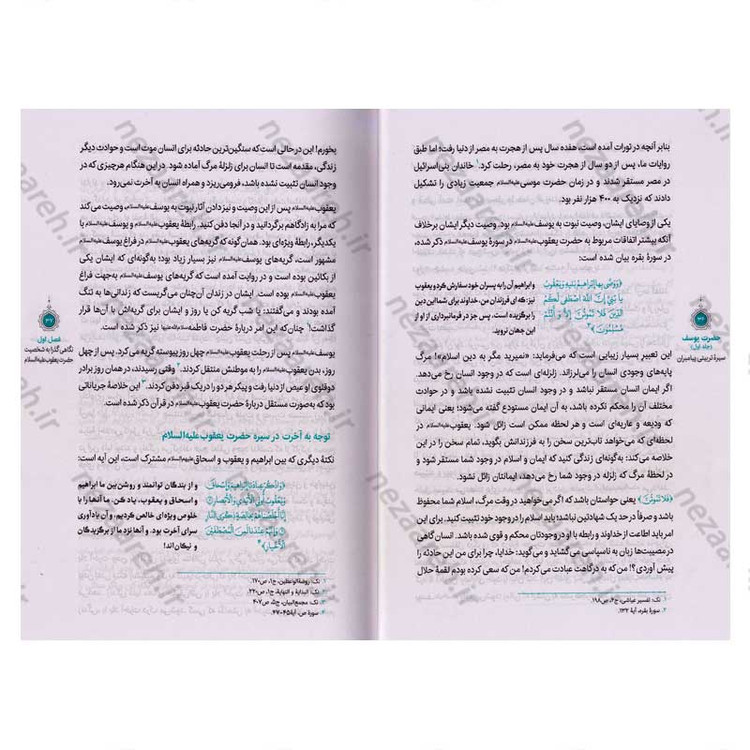 بنابر آنچه در تورات آمده است، هفده سال پس از هجرت به مصر از دنیا رفت؛ اما طبق
روایات ما، پس از دو سال از هجرت خود به مصر، رحلت کرد.۱ خاندان بنی‌اسرائیل
در مصر مستقر شدند و در زمان حضرت موسی علیه‌السلام جمعیت زیادی را تشکیل
دادند که نزدیک به ۴۰۰ هزار نفر بود.
یکی از وصایای ایشان، نبوت به یوسف علیه‌السلام بود. وصیت دیگر ایشان برخلاف
آنکه بیشتر اتفاقات مربوط به حضرت یعقوب علیه‌السلام در سورهٔ یوسف ذکر شده،
در سورهٔ بقره بیان شده است.
﴿وَوَصَّى بِهَا إِبْرَاهِيمُ بَنِيهِ وَيَعْقُوبُ
يَا بَنِيَّ إِنَّ اللَّهَ اصْطَفَى لَكُمُ
الدِّينَ فَلَا تَمُوتُنَّ إِلَّا وَأَنْتُمْ
مُسْلِمُونَ﴾۲
و ابراهیم آن را به پسران خود سفارش کرد و یعقوب
نیز؛ که‌ای فرزندان من، خداوند برای شما این دین
را برگزیده است، پس جز در فرمانبرداری از او از
این جهان نروید.
این تعبیر بسیار زیبایی است که می‌فرماید: «نمیرید مگر به دین اسلام»! مرگ
پایه‌های وجودی انسان را می‌لرزاند. زلزله‌ای است که در وجود انسان رخ می‌دهد.
اگر ایمان انسان مستقر نباشد و در وجود انسان تثبیت نشده باشد و در حوادث
مختلف آن را محکم نکرده باشد، به آن ایمان مستودع گفته می‌شود؛ یعنی ایمانی
که ودیعه و عاریه‌ای است و هر لحظه ممکن است زائل شود. یعقوب علیه‌السلام در
لحظه‌ای که می‌خواهد ناب‌ترین سخن را به فرزندانش بگوید، تمام سخن را در این
خلاصه می‌کند: به‌گونه‌ای زندگی کنید که ایمان و اسلام در وجود شما مستقر شود و
در لحظهٔ مرگ که زلزله در وجود شما رخ می‌دهد، ایمانتان زائل نشود.
﴿فَلَا تَمُوتُنَّ﴾ یعنی حواستان باشد که اگر می‌خواهید در وقت مرگ، اسلام شما محفوظ
باشد و صرفاً در حد یک شهادتین نباشد؛ باید اسلام را در وجود خود تثبیت کنید. برای این
امر باید اطاعت از خداوند و رابطه با او در وجودتان محکم و قوی شده باشد. انسان گاهی
در مصیبت‌ها زبان به ناسپاسی می‌گشاید و می‌گوید: خدایا، چرا برای من این حادثه را
پیش آوردی؟! من که به درگاهت عبادت می‌کردم! من که سعی کرده بودم لقمهٔ حلال
۱. نک: تفسیر عیاشی، ج۲، ص۱۹۸.
۲. سورهٔ بقره، آیهٔ ۱۳۲.
۳۶
حضرت یوسف
(جلد اول)
سیرهٔ تربیتی پیامبران
بخورم! این در حالی است که سنگین‌ترین حادثه برای انسان موت است و حوادث دیگر
زندگی، مقدمه است تا انسان برای زلزلهٔ مرگ آماده شود. در این هنگام هر چیزی که در
وجود انسان تثبیت نشده باشد، فرومی‌ریزد و همراه انسان به آخرت نمی‌رود.
یعقوب علیه‌السلام پس از این وصیت و نیز دادن آثار نبوت به یوسف علیه‌السلام وصیت می‌کند
که مرا به زادگاهم برگردانید و در آنجا دفن کنید. رابطهٔ یعقوب علیه‌السلام و یوسف علیه‌السلام با
یکدیگر، رابطهٔ ویژه‌ای بود. همان‌گونه که گریه‌های یعقوب علیه‌السلام در فراغ یوسف علیه‌السلام
مشهور است، گریه‌های یوسف علیه‌السلام نیز بسیار زیاد بود؛ به‌گونه‌ای که ایشان یکی
از بکائین بوده است و در روایت آمده است که گریه‌های یوسف علیه‌السلام به‌جهت فراغ
یعقوب علیه‌السلام بوده است. ایشان در زندان آن‌چنان می‌گریست که زندانی‌ها به تنگ
آمده بودند و می‌گفتند: یا شب گریه کن یا روز و ایشان برای گریه‌اش با آن‌ها قرار
گذاشت!۱ چنان‌که این امر دربارهٔ حضرت فاطمه سلام‌الله‌علیها نیز ذکر شده است.
یوسف علیه‌السلام پس از رحلت یعقوب علیه‌السلام چهل روز پیوسته گریه می‌کرد. پس از چهل
روز، بدن یعقوب علیه‌السلام را به موطنش منتقل کردند.۲ وقتی رسیدند، در همان روز برادر
دوقلوی او عیص از دنیا رفت و پیکر هر دو را در یک قبر دفن کردند.۳ این خلاصهٔ جریاناتی
بود که به‌صورت مستقل دربارهٔ حضرت یعقوب علیه‌السلام در قرآن ذکر شده است.
توجه به آخرت در سیره حضرت یعقوب علیه‌السلام
نکتهٔ دیگری که بین ابراهیم و یعقوب و اسحاق علیهم‌السلام مشترک است، این آیه است:
﴿وَاذْكُرْ عِبَادَنَا إِبْرَاهِيمَ وَإِسْحَاقَ
وَيَعْقُوبَ أُولِي الْأَيْدِي وَالْأَبْصَارِ
إِنَّا أَخْلَصْنَاهُمْ بِخَالِصَةٍ ذِكْرَى الدَّارِ
وَإِنَّهُمْ عِنْدَنَا لَمِنَ الْمُصْطَفَيْنَ
الْأَخْيَارِ﴾۴
و از بندگان توانمند و روشن‌بین ما ابراهیم
و اسحاق و یعقوب، یاد کن. ما آنها را با
خلوص ویژه‌ای خالص کردیم، و آن یادآوری
سرای آخرت بود. و آنها نزد ما از برگزیدگان
و نیکان‌اند!
۱. نک: روضةالواعظین، ج۱، ص۱۷۰.
۲. نک: البدایة و النهایة، ج۱، ص۲۲۰.
۳. نک: مجمع‌البیان، ج۵، ص۴۰۷.
۴. سورهٔ ص، آیهٔ ۴۵-۴۷.
۳۷
فصل اول
نگاهی گذرا به شخصیت
حضرت یعقوب علیه‌السلام
nezaareh.ir